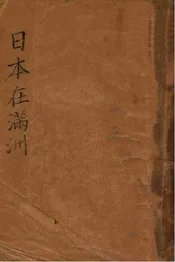 日本在滿洲